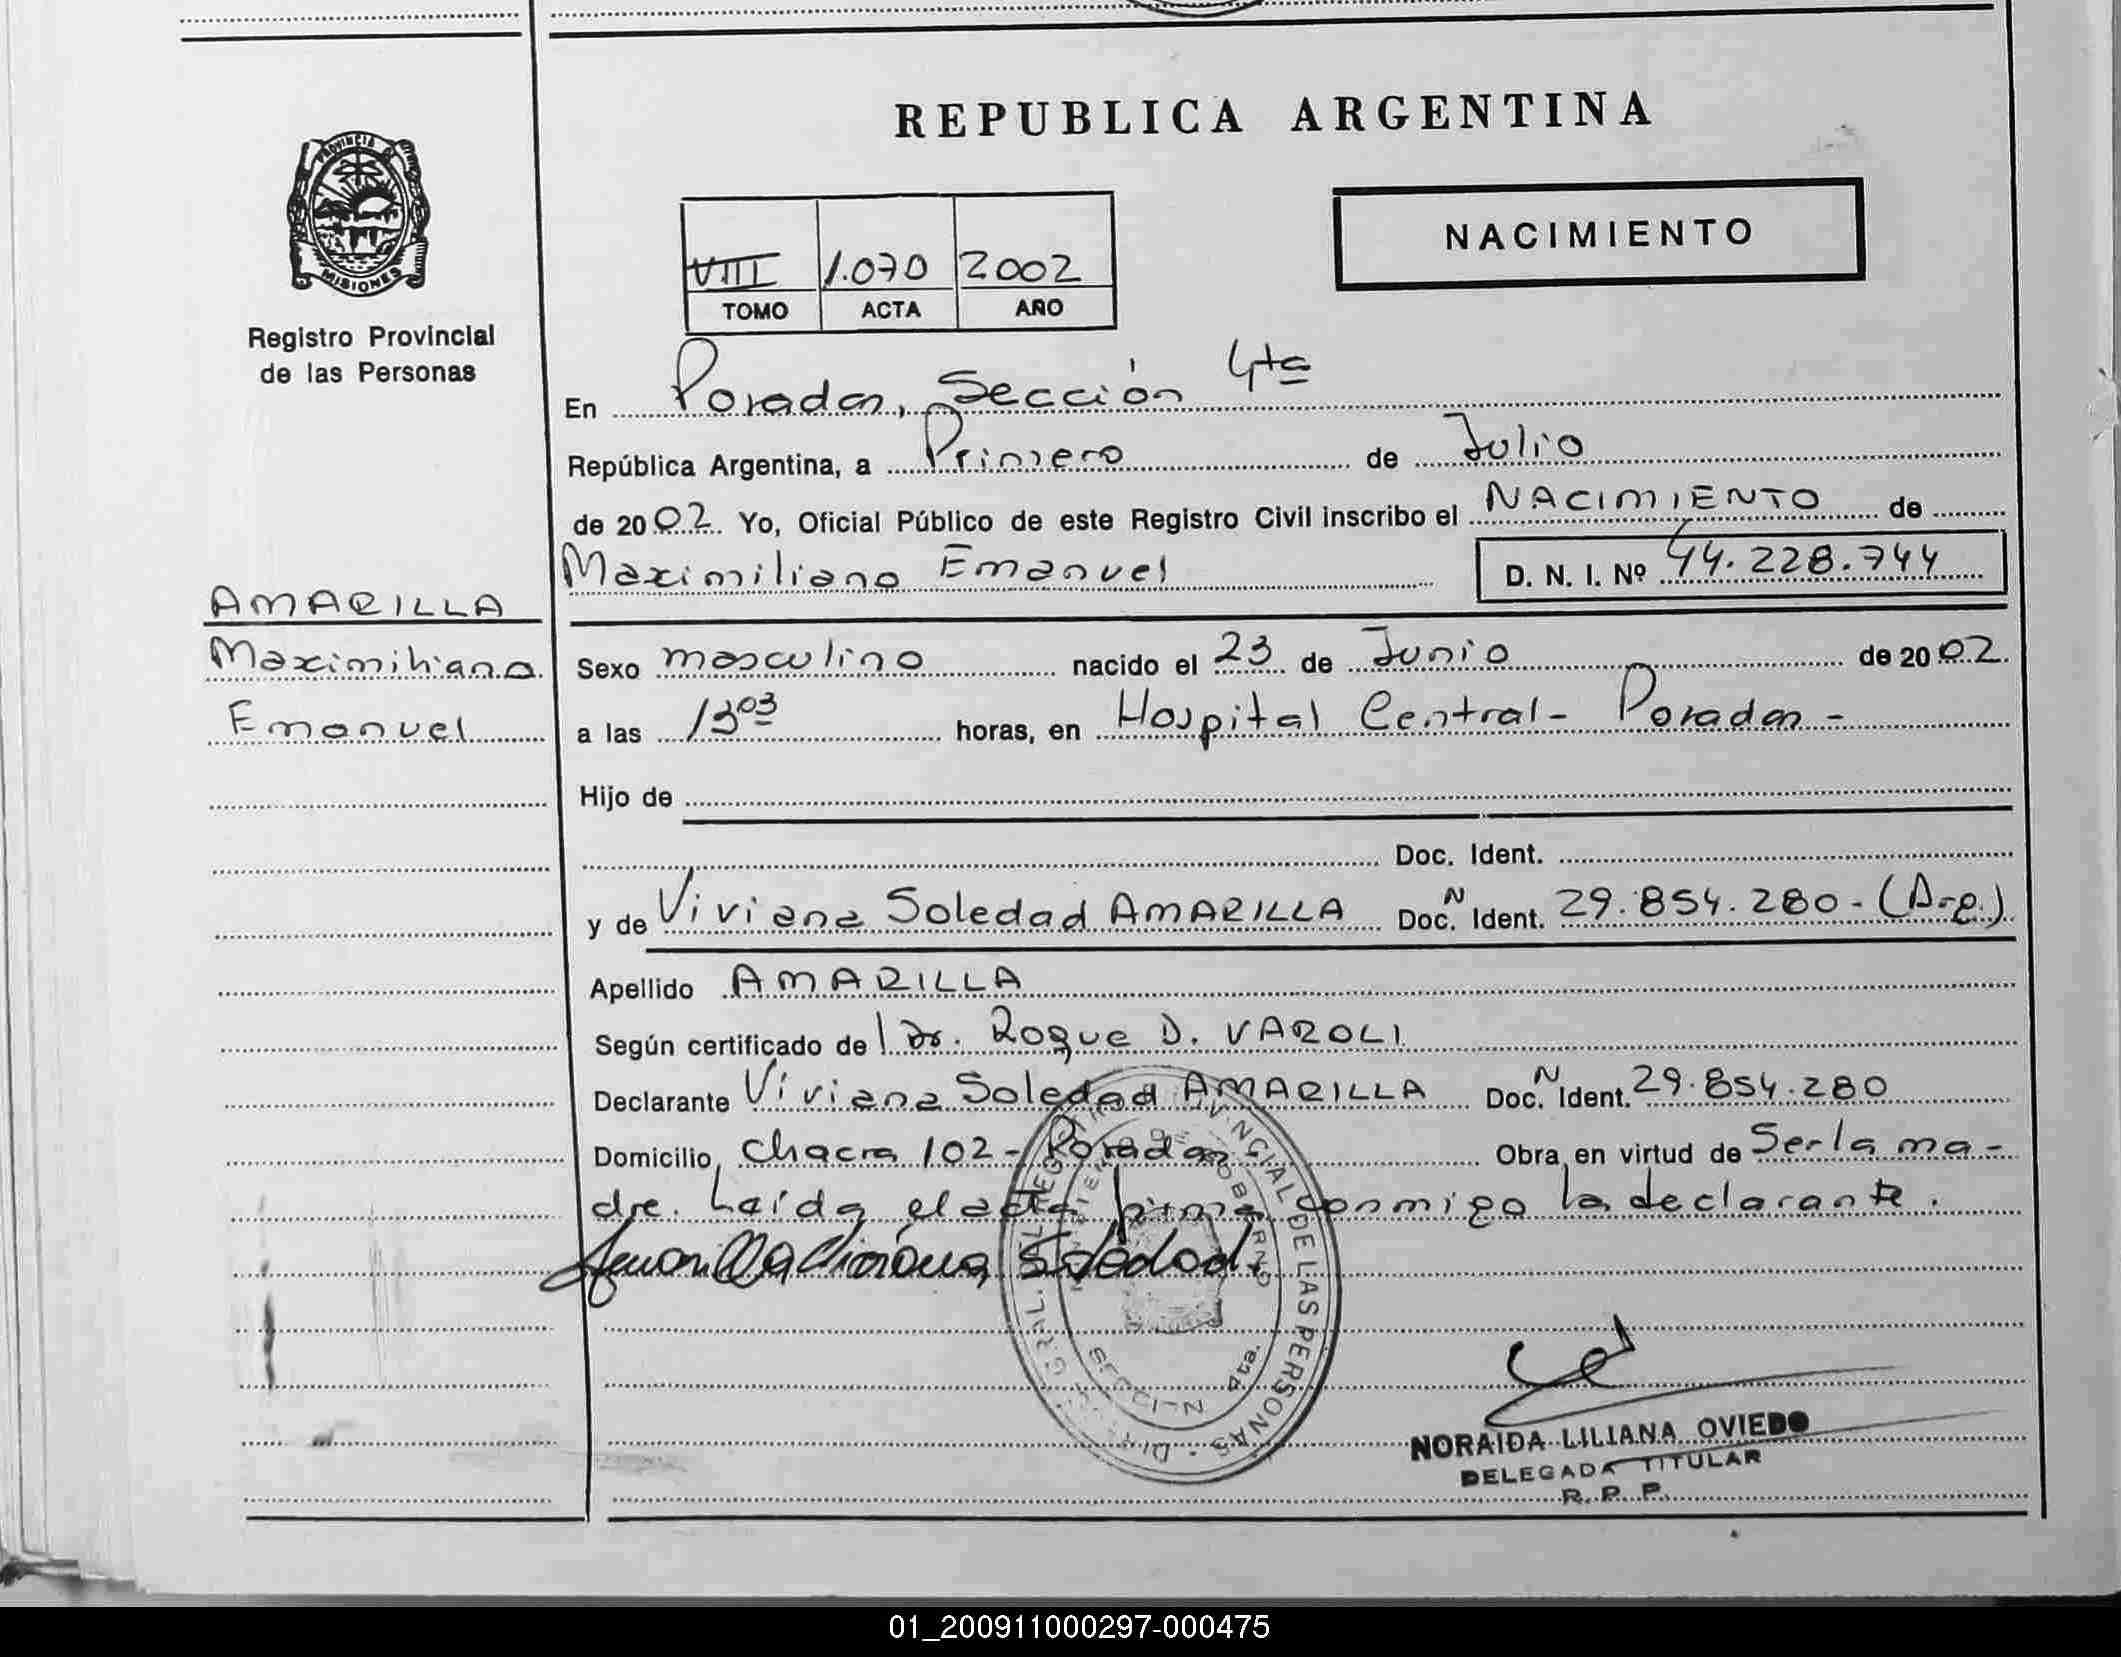 REPUBLICA ARGENTINA
PROVINCIA DE
MISIONES
Registro Provincial
de las Personas
NACIMIENTO
VIII 1.070 2002
TOMO ACTA AÑO
En Posadas, Sección 4ta
República Argentina, a Primero de Julio
de 2002. Yo, Oficial Público de este Registro Civil inscribo el NACIMIENTO de
Maximiliano Emanuel D. N. I. Nº 44.228.744
AMARILLA
Maximiliano
Emanuel
Sexo masculino nacido el 23 de Junio de 2002
a las 13 03 horas, en Hospital Central - Posadas -
Hijo de
Doc. Ident.
y de Viviana Soledad AMARILLA Doc. N Ident. 29.854.280 - (Arg.)
Apellido AMARILLA
Según certificado del Dr. Roque D. VAROLI
Declarante Viviana Soledad AMARILLA Doc. N Ident. 29.854.280
Domicilio, Chacra 102 - Posadas Obra en virtud de Ser la ma-
dre. Leída el acta firma conmigo la declarante.
Amarilla Viviana Soledad.
PROVINCIAL DE LAS PERSONAS - DIR. GRAL. DEL REGISTRO
MINISTERIO DE GOBIERNO
SECCION 4ta.
NORAIDA LILIANA OVIEDO
DELEGADA TITULAR
R. P. P.
01_200911000297-000475